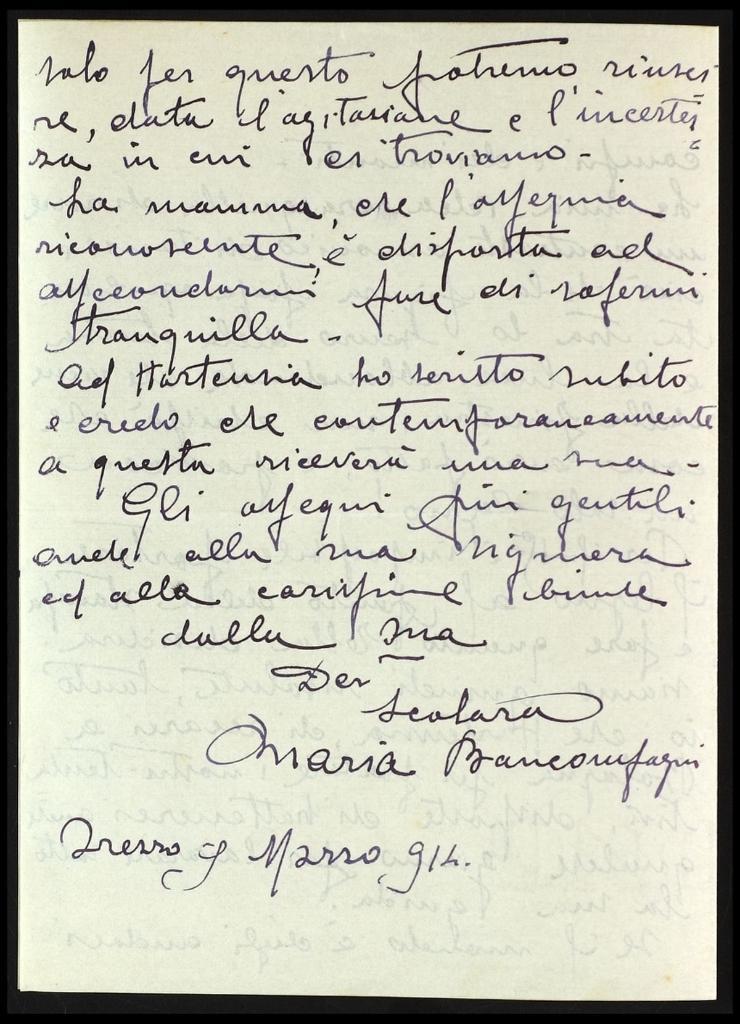 solo per questo potremo riusci
re, data l'agitazione e l'incertez
za in cui ci troviamo -
La mamma, che l'ossequia
riconoscente, è disposta ad
assecondarmi pure di sapermi
tranquilla -
Ad Hortensia ho scritto subito
e credo che contemporaneamente
a questa riceverà una sua -
Gli ossequi più gentili
anche alla sua signora
ed alle carissime bimbe
dalla Sua
Dev
Scolara
Maria Bancompagni
Arezzo, 9 Marzo, 914.